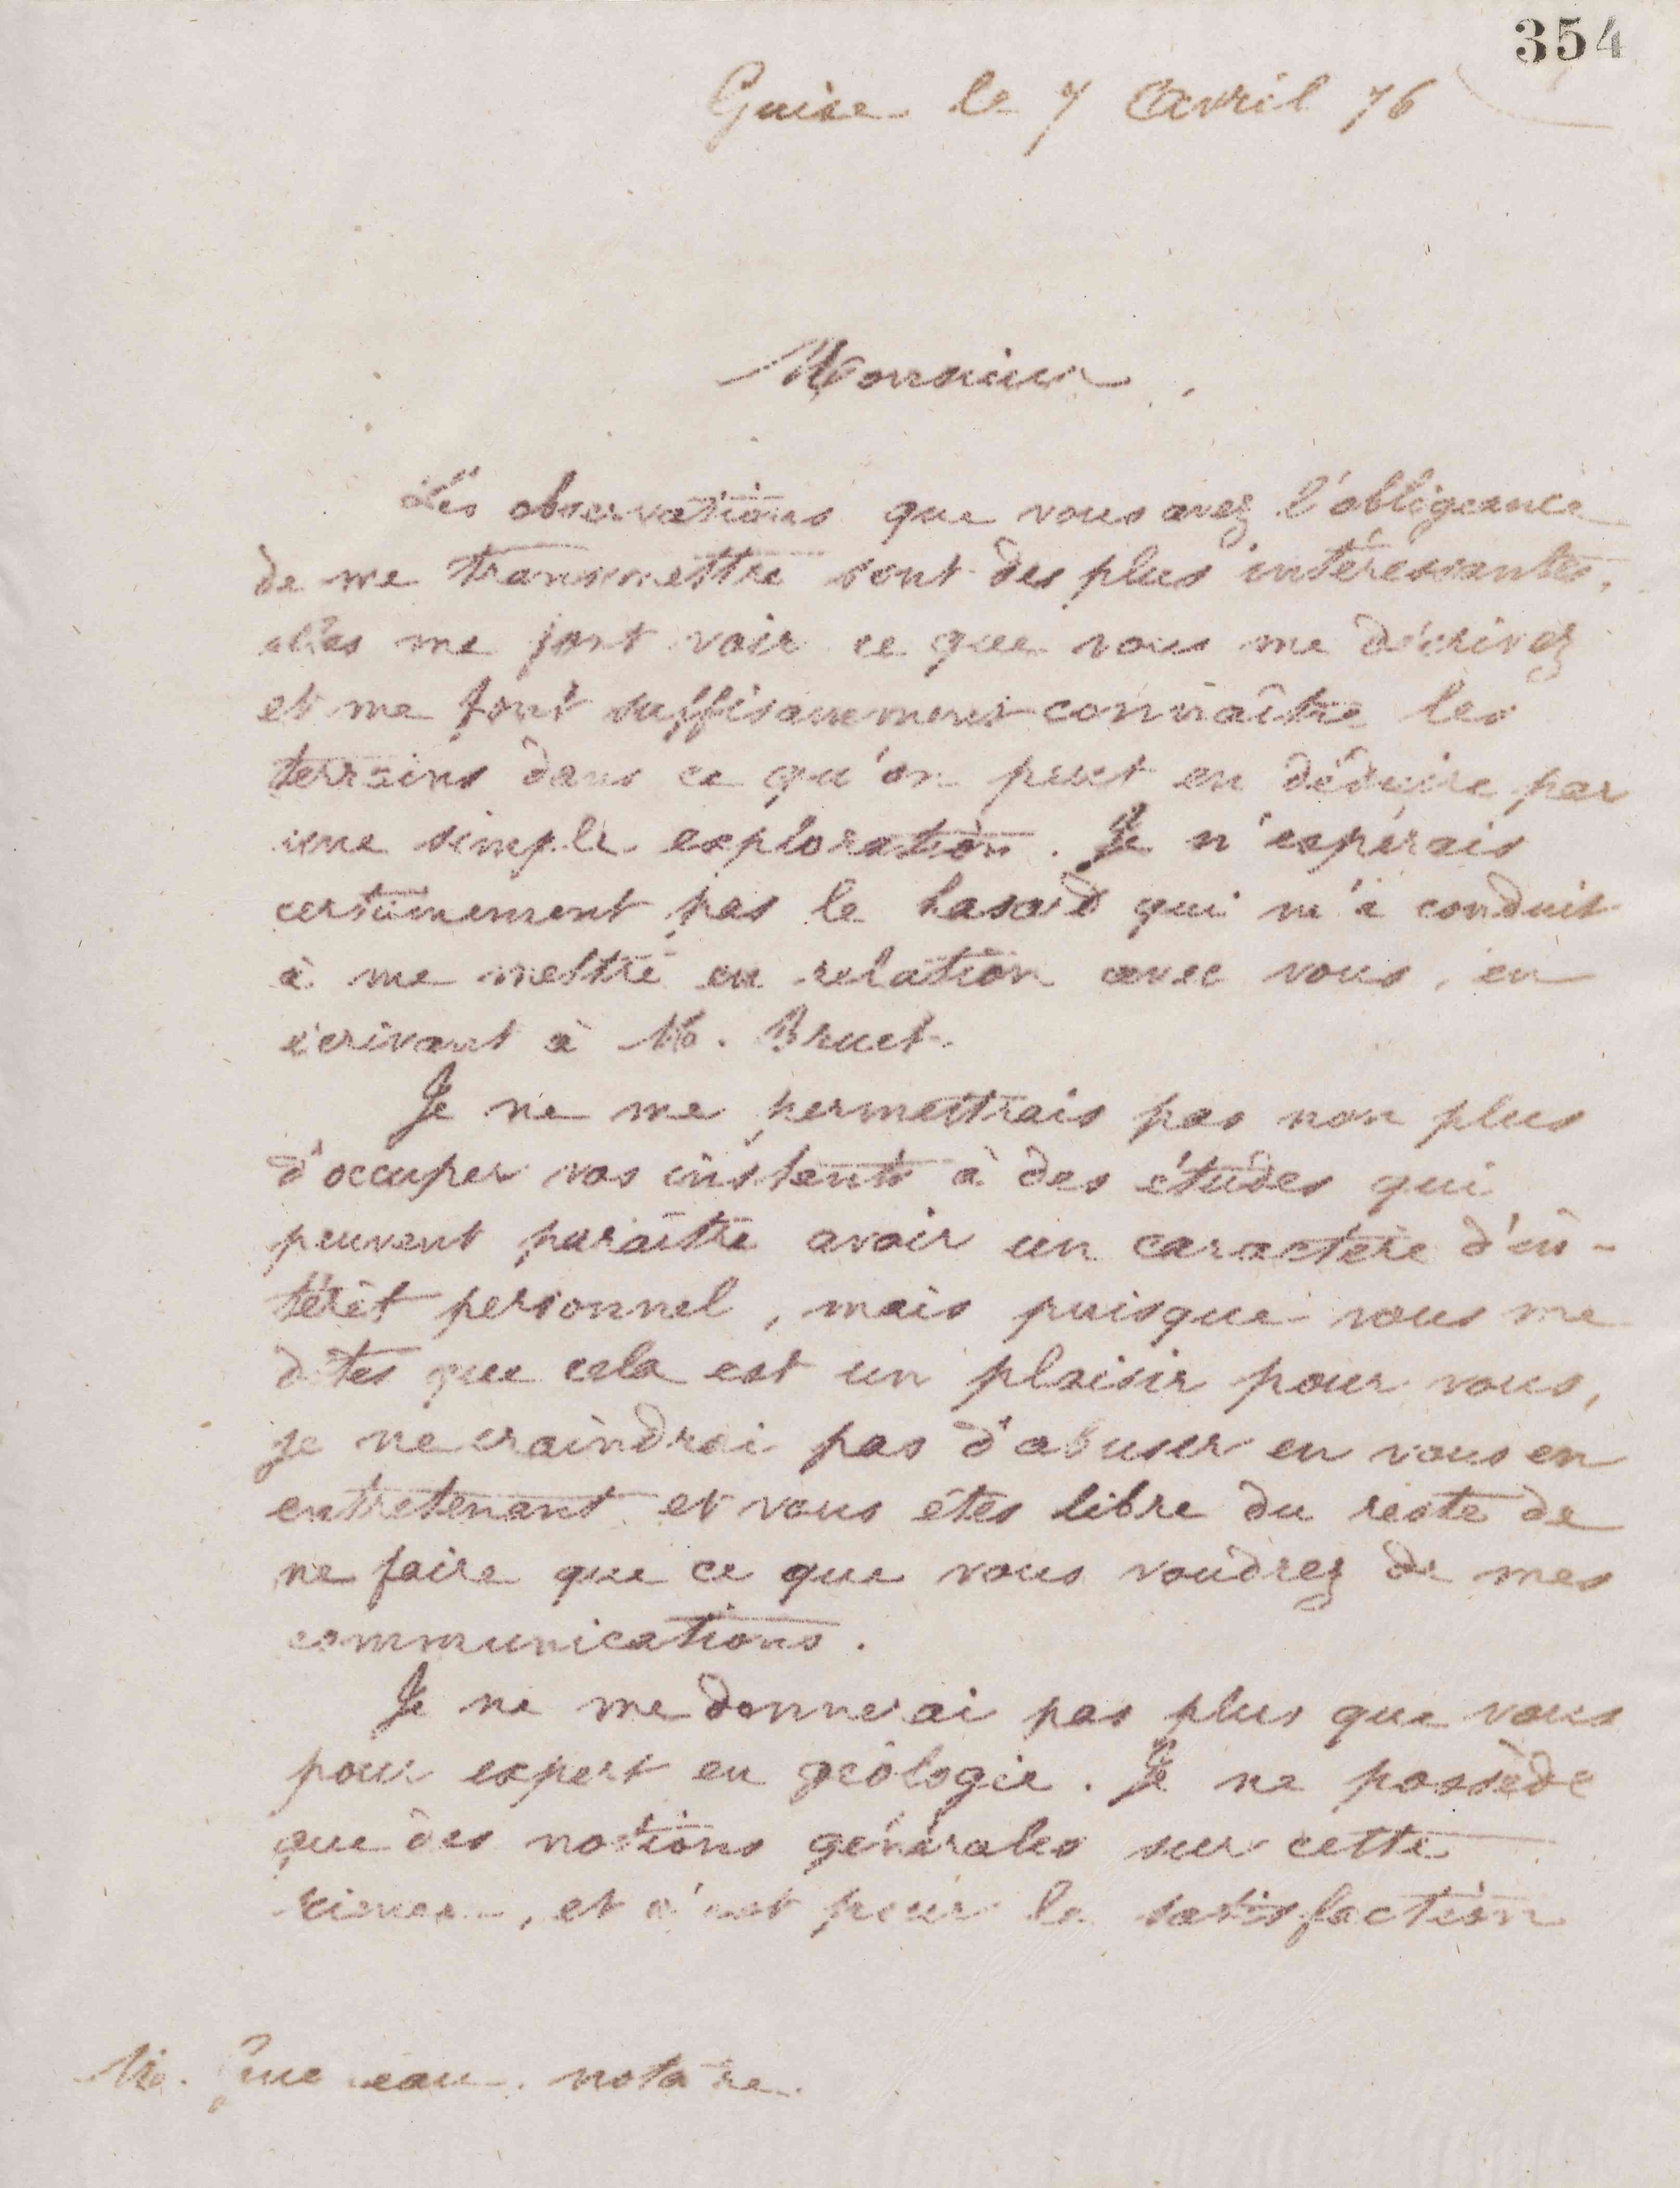 354
Guise le 7 Avril 76
Monsieur,
Les observations que vous avez l'obligeance
de me transmettre sont des plus intéressantes,
elles me font voir ce que vous me décrivez
et me font suffisamment connaître les
terrains dans ce qu'on peut en déduire par
une simple exploration. Je n'espérais
certainement pas le hasard qui m'a conduit
à me mettre en relation avec vous, en
écrivant à M. Bruet.
Je ne me permettrais pas non plus
d'occuper vos instants à des études qui
peuvent paraître avoir un caractère d'in-
térêt personnel, mais puisque vous me
dites que cela est un plaisir pour vous,
je ne craindrai pas d'abuser en vous en
entretenant et vous êtes libre du reste de
ne faire que ce que vous voudrez de mes
communications.
Je ne me donnerai pas plus que vous
pour expert en géologie. Je ne possède
que des notions générales sur cette
science, et c'est pour la satisfaction
M. notaire.